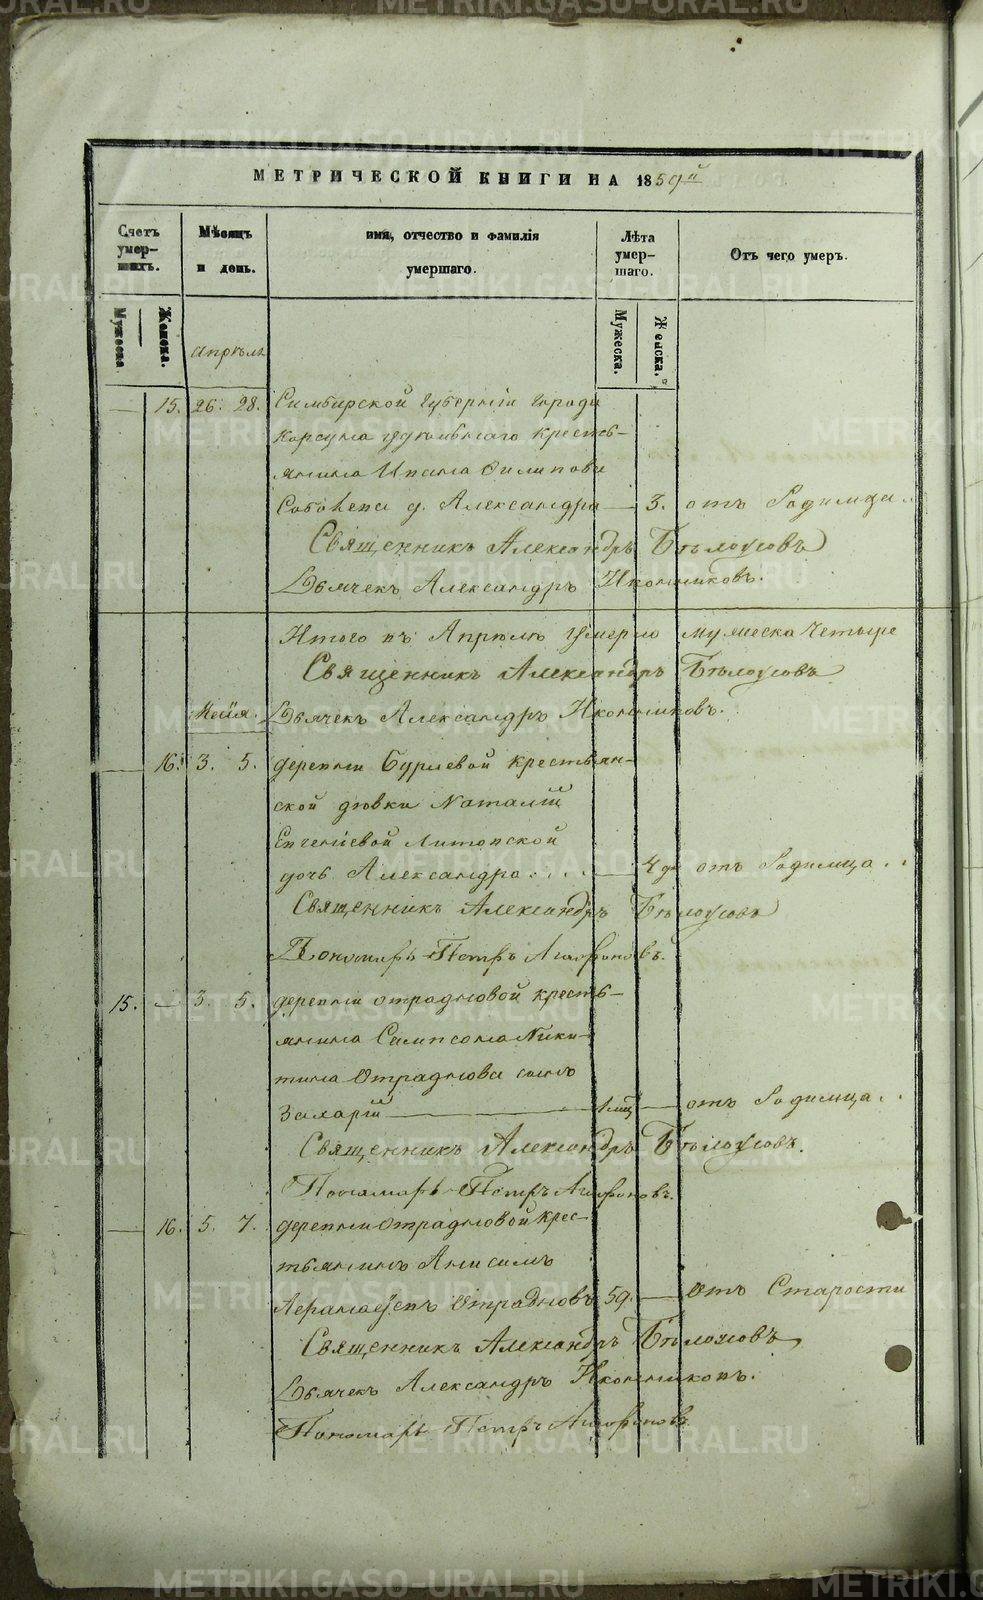 МЕТРИЧЕСКОЙ КНИГИ НА 1859й
Счетъ умер-шихъ.
Мѣсяцъ и день.
имя, отчество и фамилія умершаго.
Лѣта умер-шаго.
Отъ чего умеръ.
Мужеска
Женска.
Мужеска.
Женска.
Апрѣль
— 15. 26. 28. Симбирской Губерніи города
Корсуна удѣльнаго кресть-
янина Ивана Филипова
д. Александра — 3. отъ Родимца.
Священникъ Александръ Бѣлоусовъ
Дьячекъ Александръ Иконниковъ.
Итого въ Апрѣлѣ умерло мужеска Четыре
Священникъ Александръ Бѣлоусовъ
Маія. Дьячекъ Александръ Иконниковъ.
— 16. 3. 5. деревни Бурлевой крестьян-
ской дѣвки Наталіи
Евгеніевой Литовской
дочь Александра . . . — 4 дн отъ Родимца . .
Священникъ Александръ Бѣлоусовъ
Пономарь Петръ Агафоновъ.
15. — 3. 5. деревни Отрадновой кресть-
янина Сампсона Ники-
тина Отраднова сынъ
Захарій — 1 мц — отъ Родимца . .
Священникъ Александръ Бѣлоусовъ.
Пономарь Петръ Агафоновъ.
— 16. 5. 7. деревни Отрадновой крес-
тьянинъ Анисимъ
Отрадновъ 59. — Отъ Старости
Священникъ Александръ Бѣлоусовъ
Дьячекъ Александръ Иконниковъ.
Пономарь Петръ Агафоновъ
METRIKI.GASO-URAL.RU